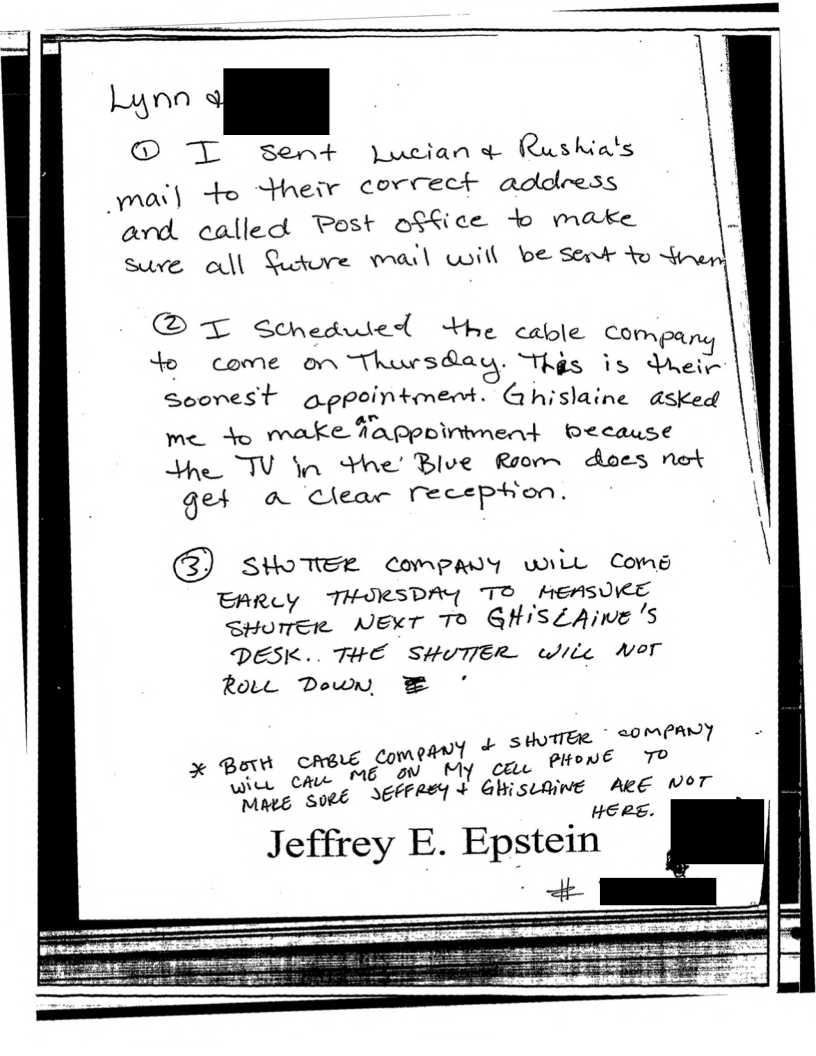 Lynn &
① I sent Lucian & Rushia's
mail to their correct address
and called Post office to make
sure all future mail will be sent to them
② I scheduled the cable company
to come on Thursday. This is their
soonest appointment. Ghislaine asked
me to make an appointment because
the TV in the Blue Room does not
get a clear reception.
③. SHUTTER COMPANY WILL COME
EARLY THURSDAY TO MEASURE
SHUTTER NEXT TO GHISLAINE'S
DESK.. THE SHUTTER WILL NOT
ROLL DOWN.
* BOTH CABLE COMPANY & SHUTTER COMPANY
WILL CALL ME ON MY CELL PHONE TO
MAKE SURE JEFFREY & GHISLAINE ARE NOT
HERE.
Jeffrey E. Epstein
#